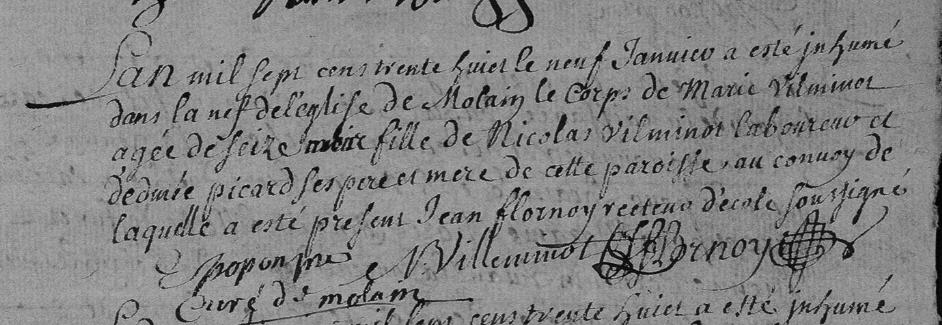 Lan mil sept cens trente huict le neuf Janvier a esté jnhumé
dans la nef de l'eglise de Molain le corps de Marie Vilminot
agée de seize mois fille de Nicolas Vilminot laboureur et
de picard ses pere et mere de cette paroisse, au convoy de
laquelle a esté present Jean flornoy recteur d'école soussigné
NVilleminot JFlornoy
Curé de molain
cens trente huict a esté jnhumé